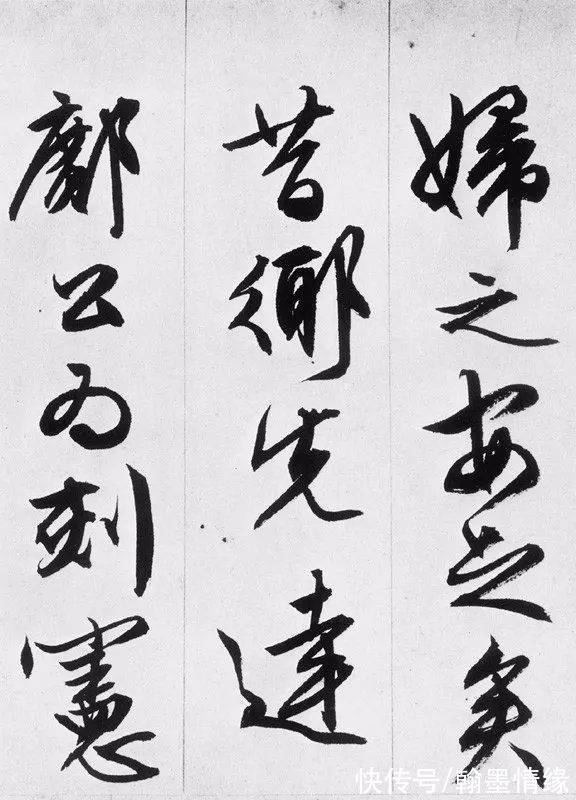 婦之安之矣
昔鄉先達
鄺公為刻憲
快传号/翰墨情缘